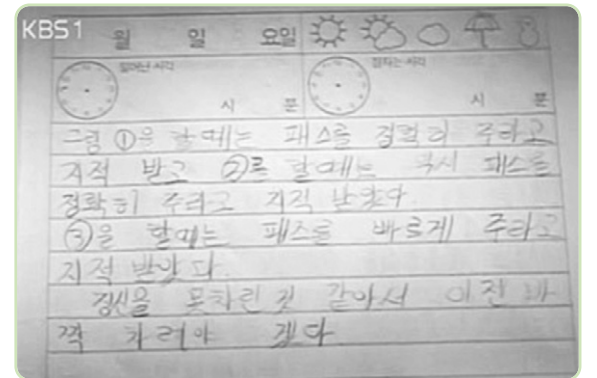 KBS 1
월 일 요일
일어난 시각 잠자는 시각
시 분 시 분
그림 ①을 할때는 패스를 정확히 주라고
지적 받고 ②를 할때는 역시 패스를
정확히 주라고 지적 받았다.
③을 할때는 패스를 빠르게 주라고
지적 받았다.
정신을 못차린것 같아서 이젠 바
짝 차려야 겠다